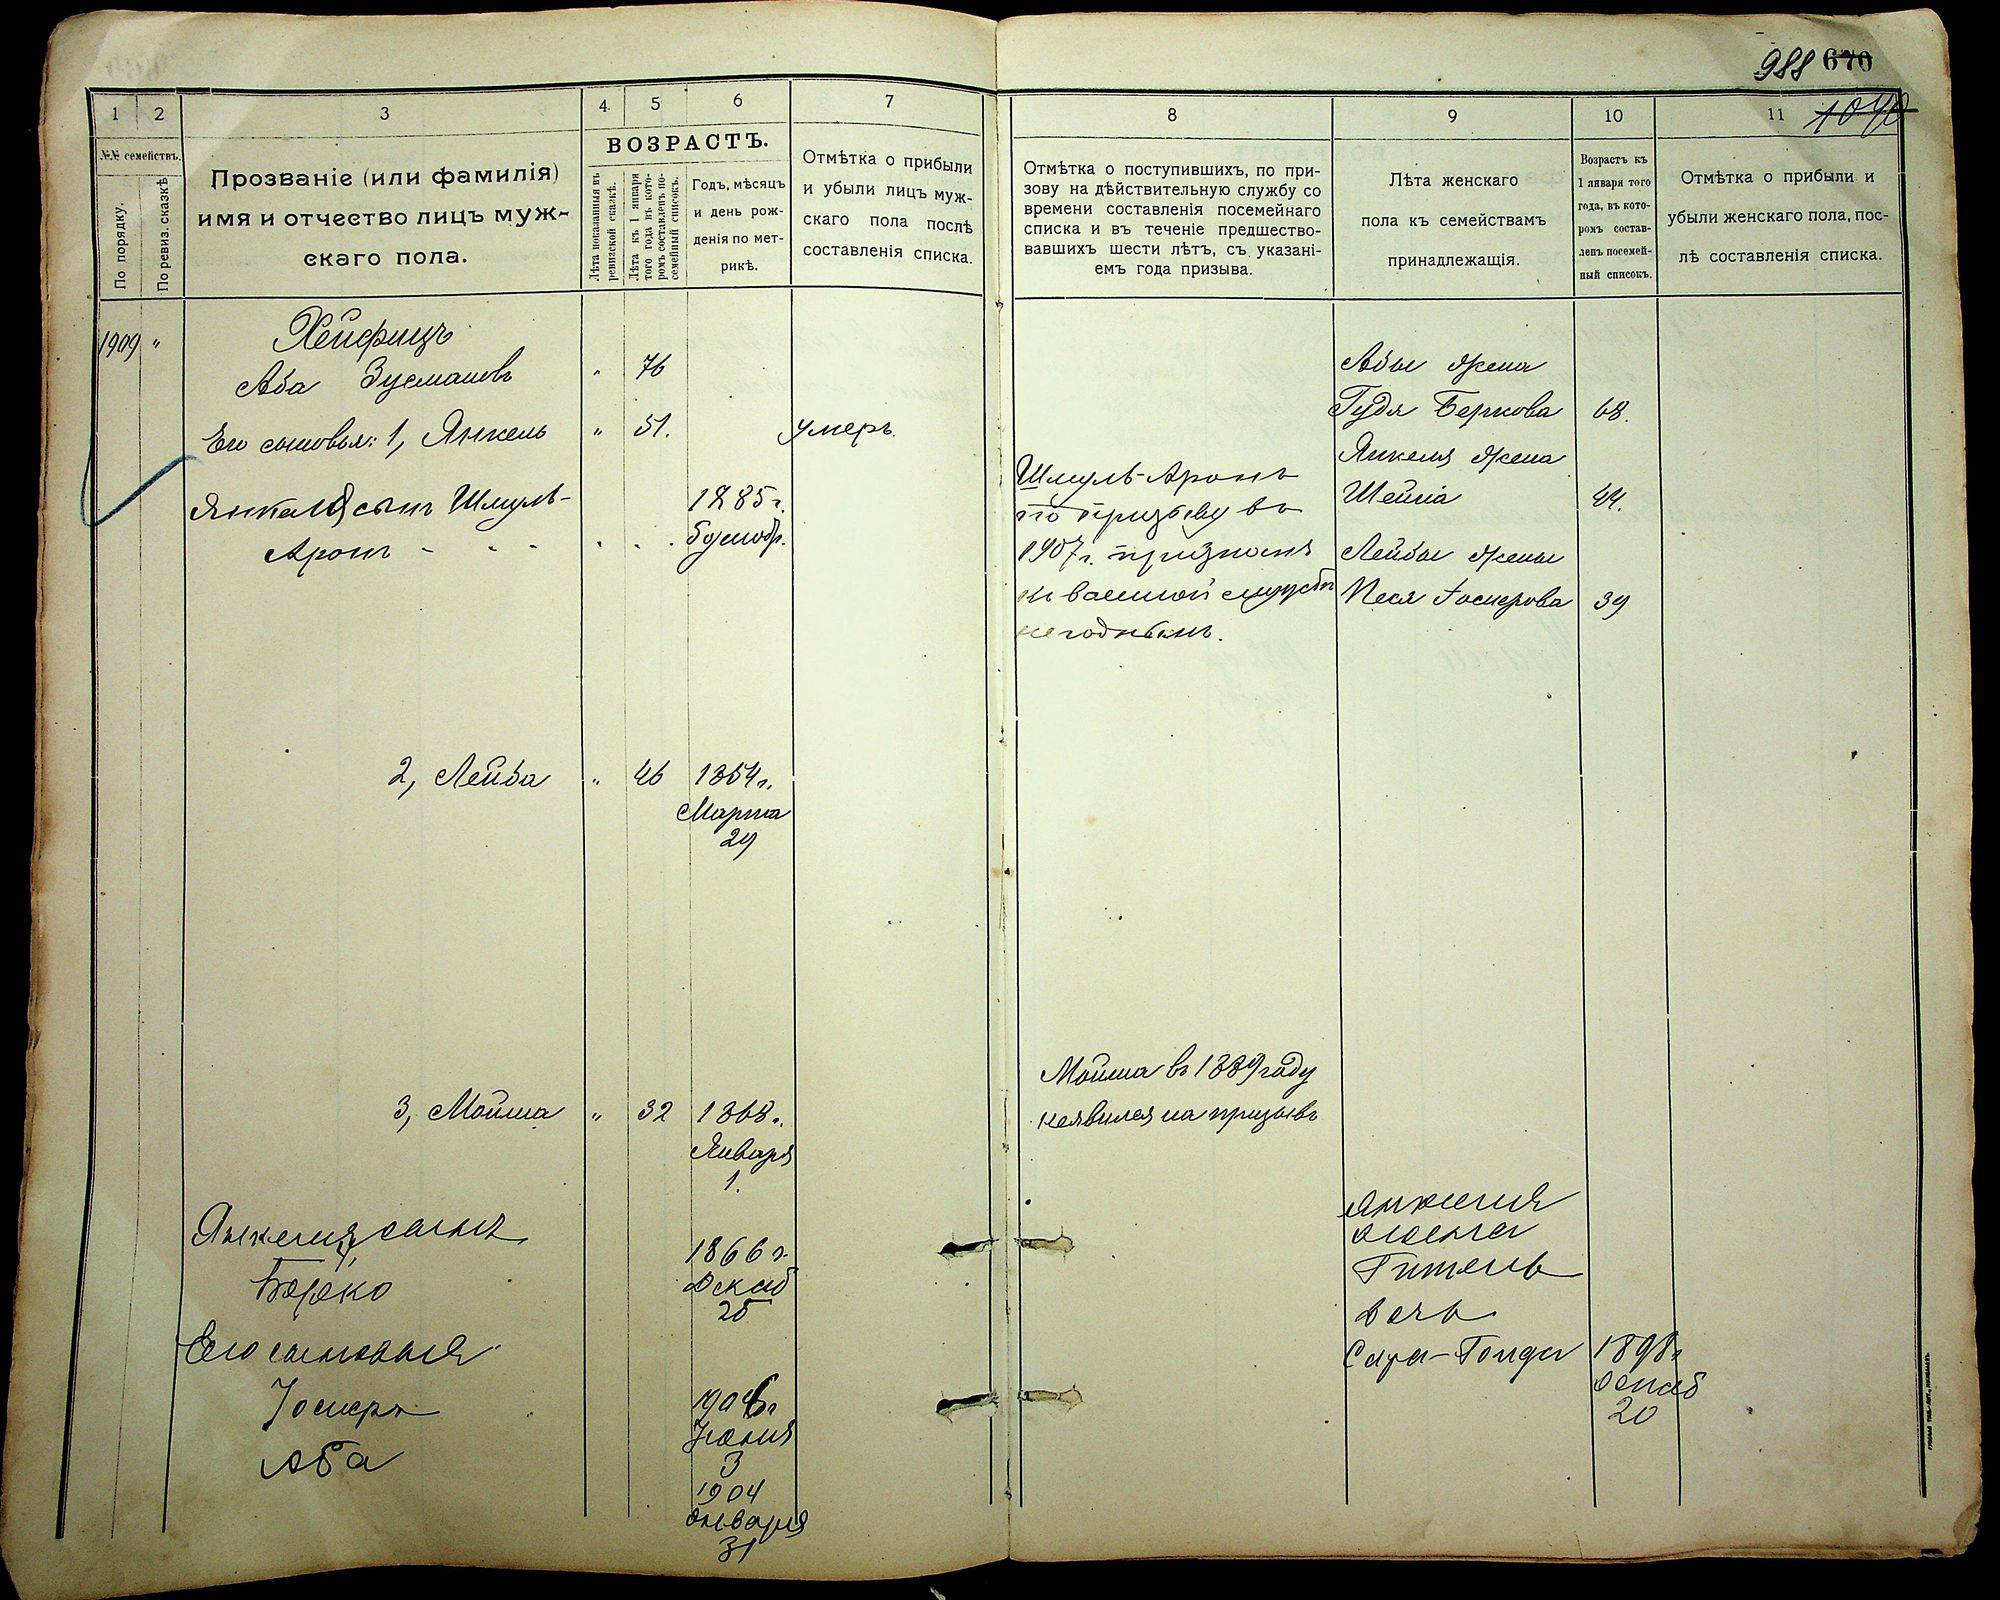 988 670
1040
1
2
3
4
5
6
7
№№ семействъ.
По порядку.
По ревиз. сказкѣ
Прозваніе (или фамилія)
имя и отчество лицъ муж-
скаго пола.
ВОЗРАСТЪ.
Лѣта показанныя въ
ревизской сказкѣ.
Лѣта къ 1 января
того года въ кото-
ромъ составленъ по-
семейный списокъ.
Годъ, мѣсяцъ
и день рож-
денія по мет-
рикѣ.
Отмѣтка о прибыли
и убыли лицъ муж-
скаго пола послѣ
составленія списка.
1909 "
Хейфицъ
Аба Зусмановъ " 76
Его сыновья: 1, Янкель " 51. умеръ.
Янкеля сынъ Шмуль- 1885 г.
Аронъ - - -
2, Лейба " 46 1854 г.
Марта
29
3, Мойша " 32 1868 г.
Января
1.
Янкеля сынъ
1866 г.
Берко Декаб
25
Его сыновья
Іосиръ 1906 г
Іюния
3
Аба
1904
Января
31
8
9
10
11
Отмѣтка о поступившихъ, по при-
зову на дѣйствительную службу со
времени составленія посемейнаго
списка и въ теченіе предшество-
вавшихъ шести лѣтъ, съ указані-
емъ года призыва.
Лѣта женскаго
пола къ семействамъ
принадлежащія.
Возрастъ къ
1 января того
года, въ кото-
ромъ состав-
ленъ посемей-
ный списокъ.
Отмѣтка о прибыли и
убыли женскаго пола, пос-
лѣ составленія списка.
Абы жена
Гудя Беркова 68.
Янкеля жена
Шейна 44.
Лейбы жены
Песя Іосиерова 39
Шмуль-Аронъ
по призыву въ
1907 г. признанъ
къ военной службѣ
негоднымъ.
Мойша въ 1889 году
неявился на призывъ
Янкеля
жена
Гитель
дочь
Сара-Голда 1898 г
декаб
20